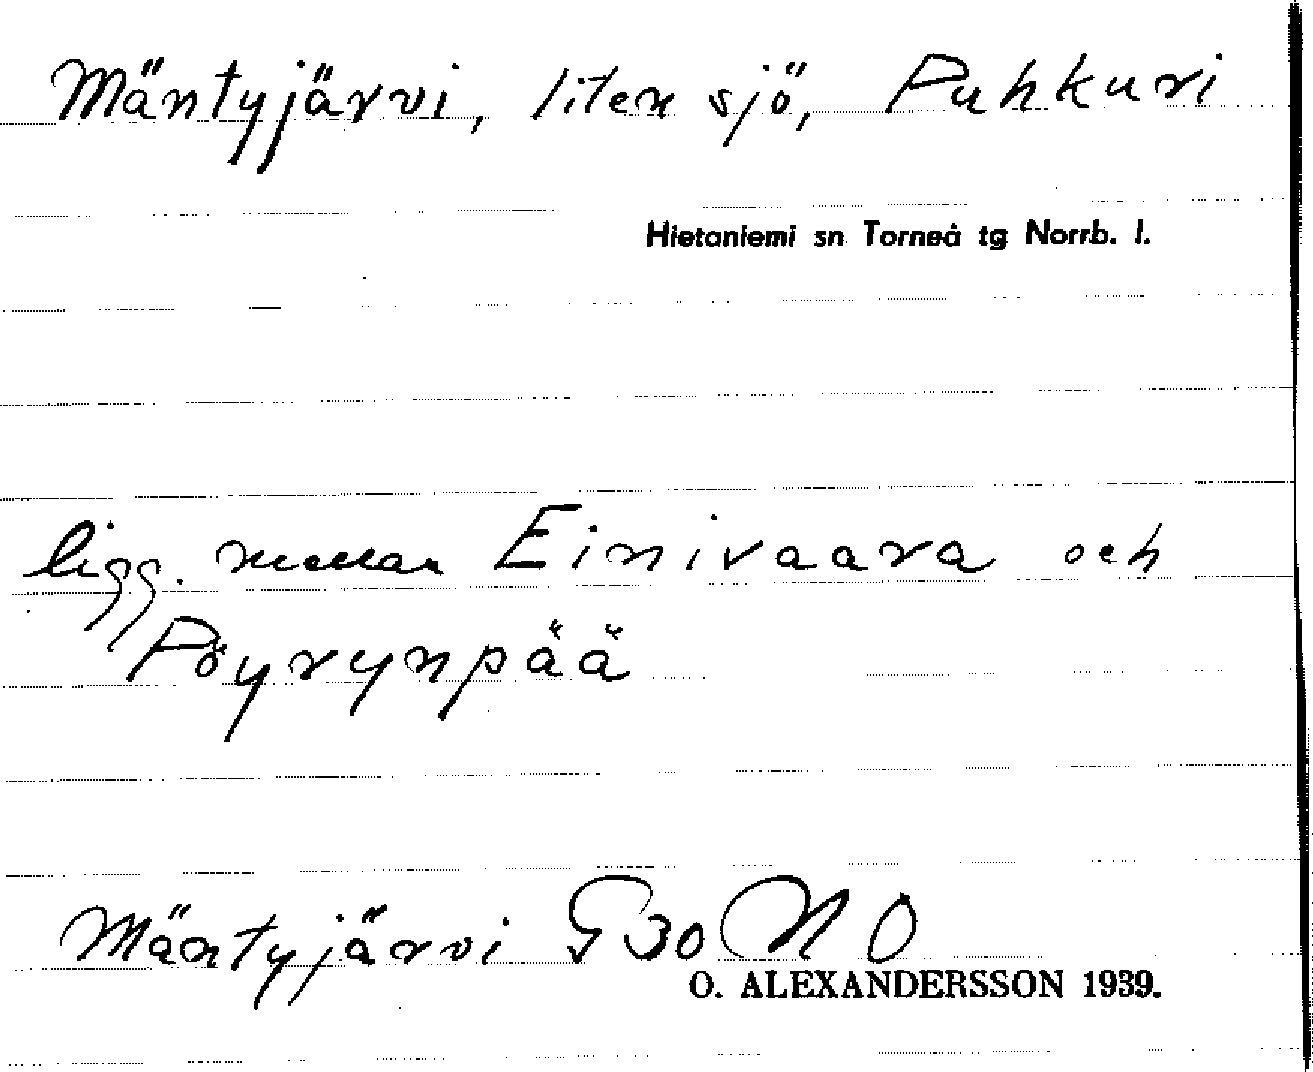 Mäntyjärvi, liten sjö, Puhkuri
Hietaniemi sn Torneå tg Norrb. l.
ligg. mellan Einivaara och
Pöyrynpää
Mäntyjärvi G 30 NO
O. ALEXANDERSSON 1939.